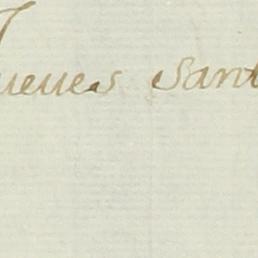 Jueues Sant